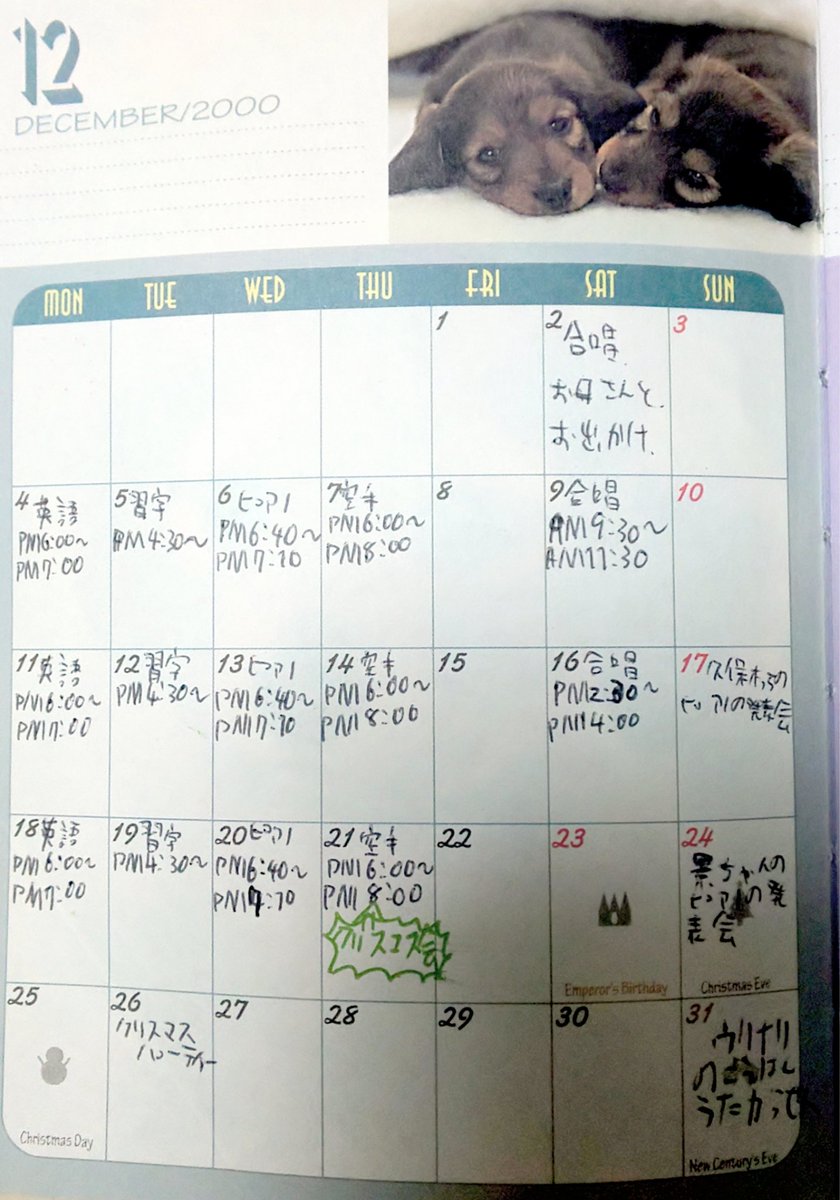 12
DECEMBER/2000
MON TUE WED THU FRI SAT SUN
1
2 合唱
お母さんと
お出かけ
3
4 英語
PM6:00〜
PM7:00
5 習字
PM4:30〜
6 ピアノ
PM6:40〜
PM7:10
7 空手
PM6:00〜
PM8:00
8
9 合唱
AM9:30〜
AM11:30
10
11 英語
PM6:00〜
PM7:00
12 習字
PM4:30〜
13 ピアノ
PM6:40〜
PM7:10
14 空手
PM6:00〜
PM8:00
15
16 合唱
PM2:30〜
PM4:00
17 久保
ピアノの発表会
18 英語
PM6:00〜
PM7:00
19 習字
PM4:30〜
20 ピアノ
PM6:40〜
PM7:10
21 空手
PM6:00〜
PM8:00
22
23
Emperor's Birthday
24
景ちゃんの
ピアノの発
表会
Christmas Eve
25
Christmas Day
26
クリスマス
パーティー
27
28
29
30
31
ウリナリ
の
New Century's Eve